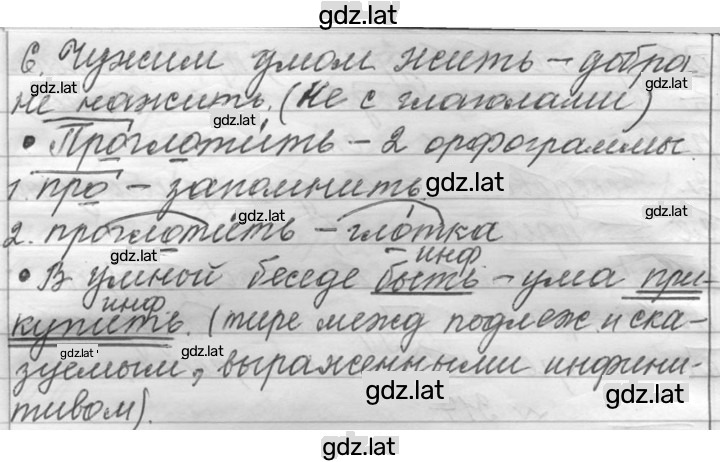 gdz.lat
6. Чужим умом жить – добра
gdz.lat gdz.lat gdz.lat
не нажить. (Не с глаголами)
gdz.lat
• Проглотить – 2 орфограммы.
1. про – запомнить. gdz.lat
gdz.lat gdz.lat
2. проглотить – глотка
инф.
gdz.lat
• В умной беседе быть – ума при-
инф
купить. (тире межд подлеж. и ска-
gdz.lat gdz.lat
зуемым, выраженными инфини-
gdz.lat gdz.lat
тивом).
gdz.lat